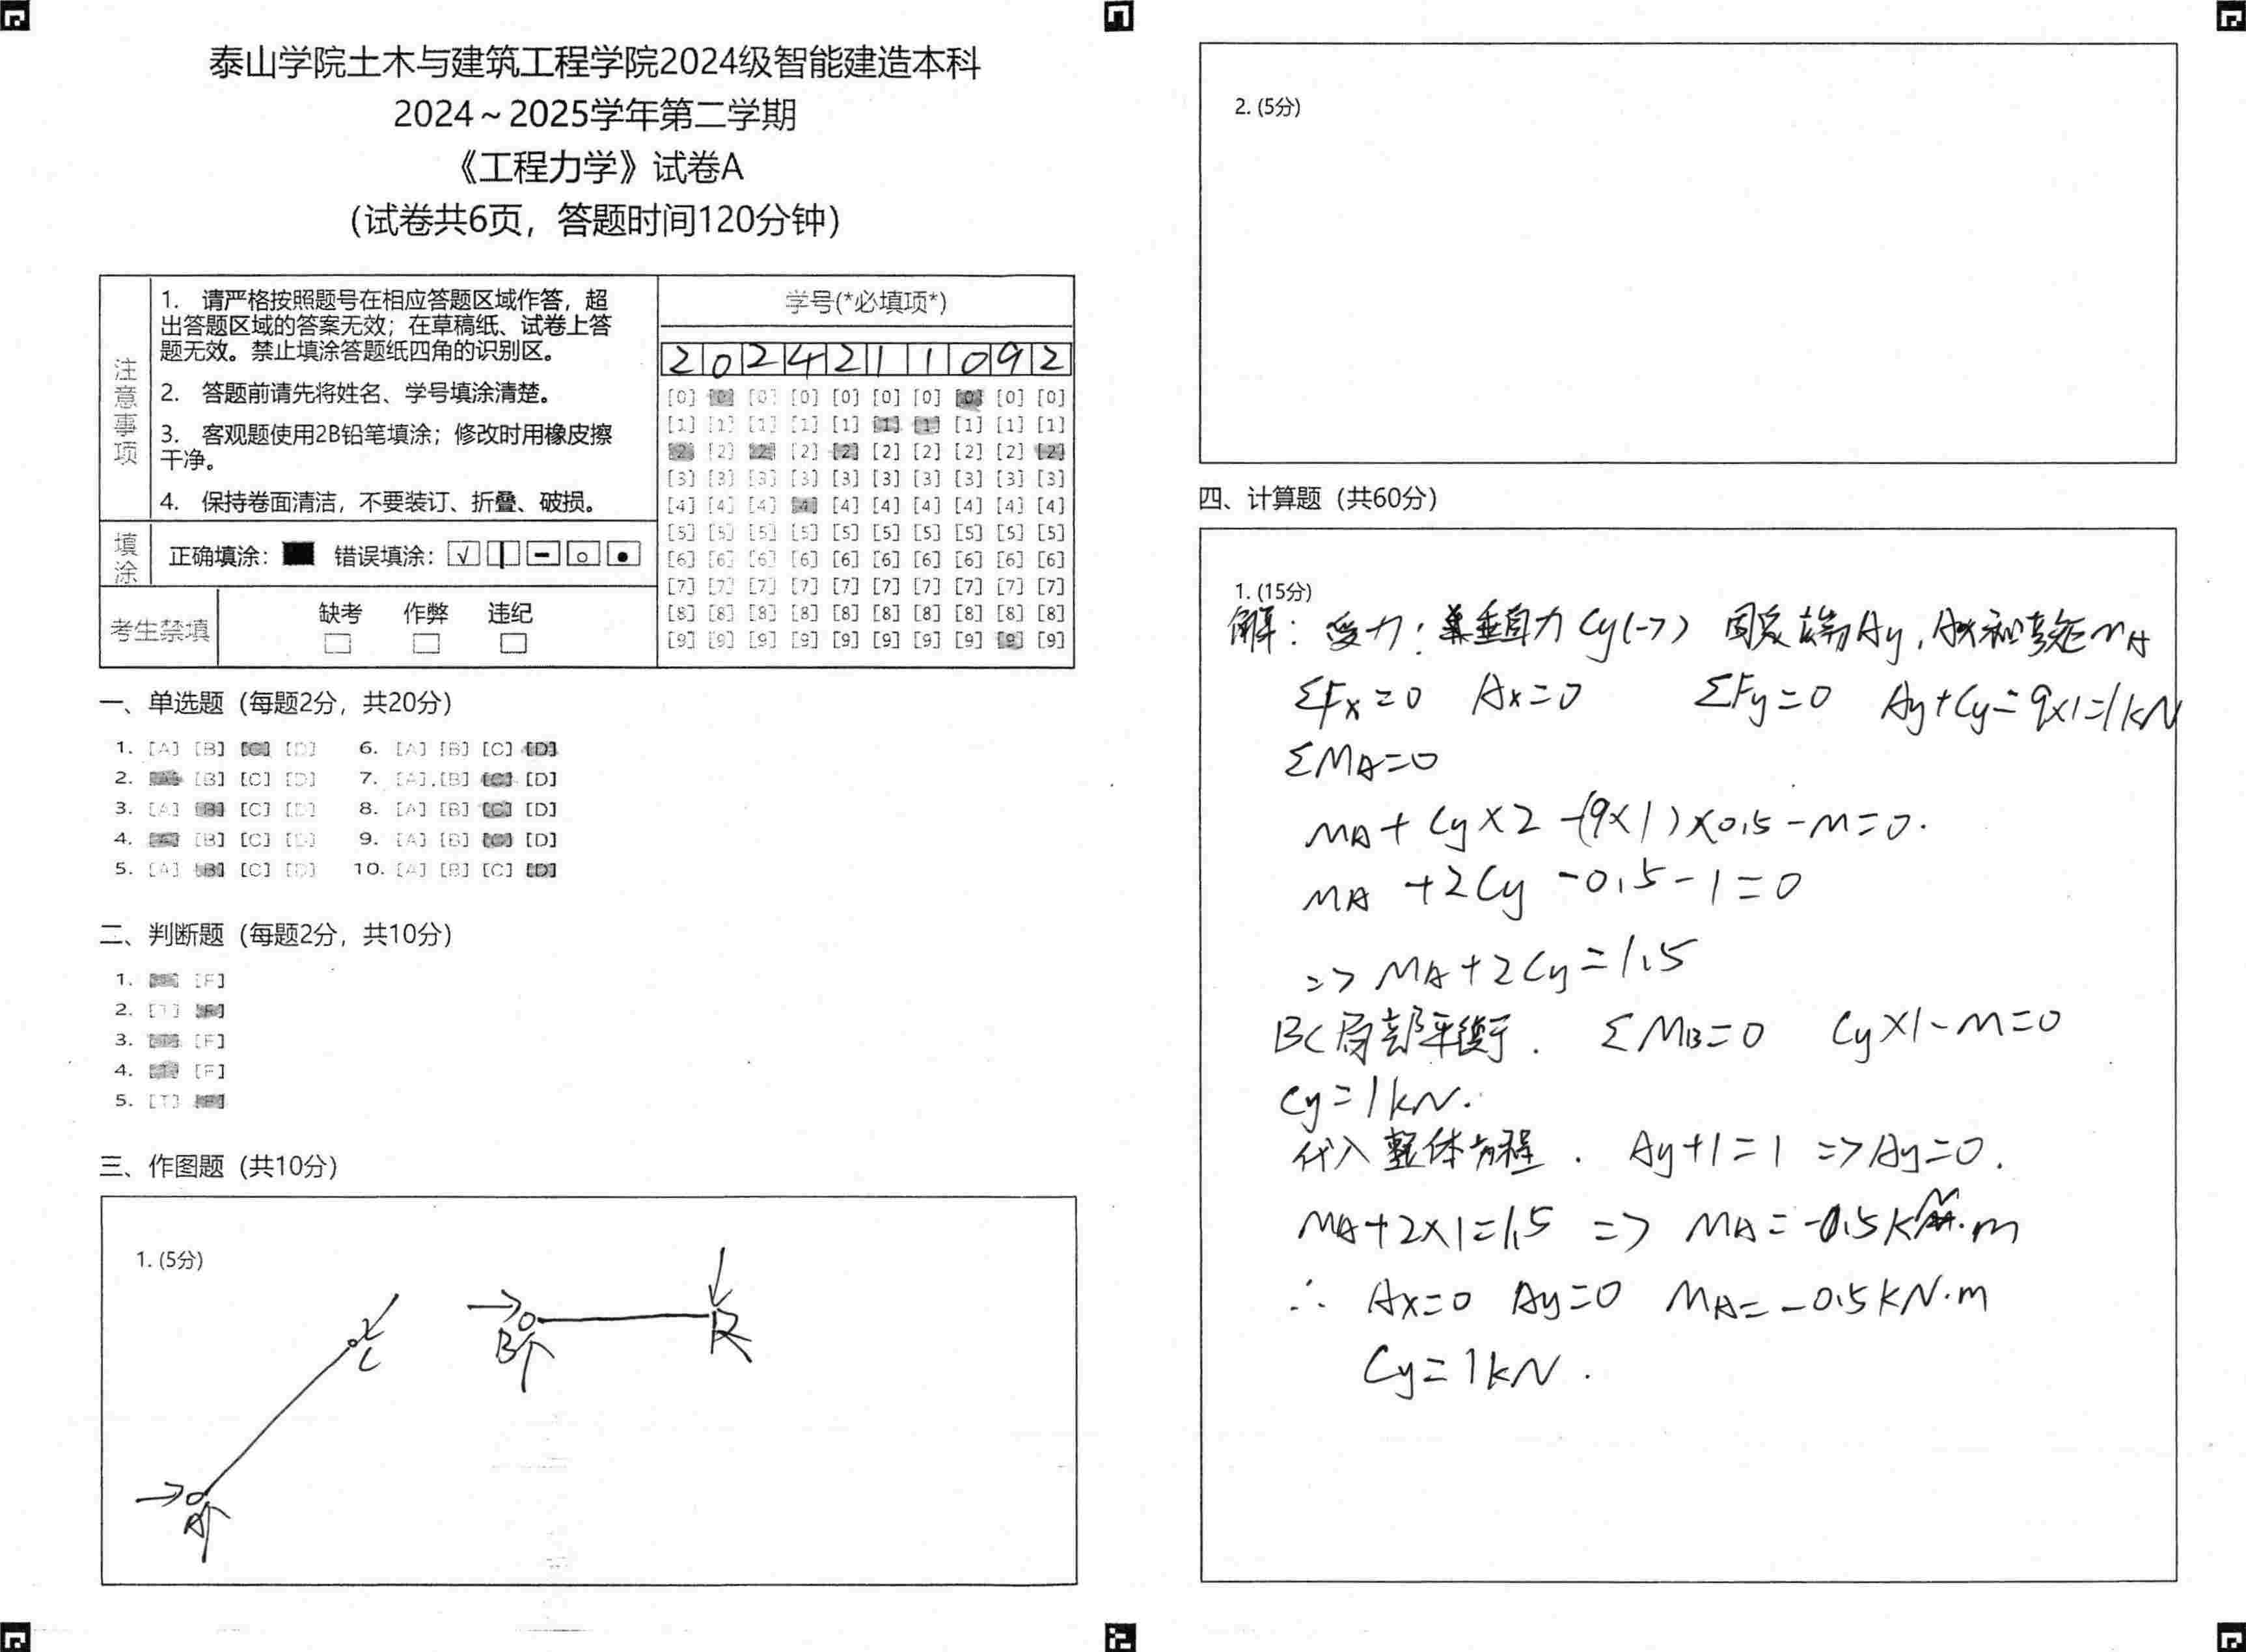 泰山学院土木与建筑工程学院2024级智能建造本科
2024～2025学年第二学期
《工程力学》试卷A
（试卷共6页，答题时间120分钟）
注意事项
1. 请严格按照题号在相应答题区域作答，超
出答题区域的答案无效；在草稿纸、试卷上答
题无效。禁止填涂答题纸四角的识别区。
2. 答题前请先将姓名、学号填涂清楚。
3. 客观题使用2B铅笔填涂；修改时用橡皮擦
干净。
4. 保持卷面清洁，不要装订、折叠、破损。
填涂
正确填涂： 错误填涂：
考生禁填
缺考 作弊 违纪
学号(*必填项*)
2024211092
[0] [0] [0] [0] [0] [0] [0] [0] [0] [0]
[1] [1] [1] [1] [1] [1] [1] [1] [1] [1]
[2] [2] [2] [2] [2] [2] [2] [2] [2] [2]
[3] [3] [3] [3] [3] [3] [3] [3] [3] [3]
[4] [4] [4] [4] [4] [4] [4] [4] [4] [4]
[5] [5] [5] [5] [5] [5] [5] [5] [5] [5]
[6] [6] [6] [6] [6] [6] [6] [6] [6] [6]
[7] [7] [7] [7] [7] [7] [7] [7] [7] [7]
[8] [8] [8] [8] [8] [8] [8] [8] [8] [8]
[9] [9] [9] [9] [9] [9] [9] [9] [9] [9]
一、单选题（每题2分，共20分）
1. [A] [B] [C] [D] 6. [A] [B] [C] [D]
2. [A] [B] [C] [D] 7. [A] [B] [C] [D]
3. [A] [B] [C] [D] 8. [A] [B] [C] [D]
4. [A] [B] [C] [D] 9. [A] [B] [C] [D]
5. [A] [B] [C] [D] 10. [A] [B] [C] [D]
二、判断题（每题2分，共10分）
1. [T] [F]
2. [T] [F]
3. [T] [F]
4. [T] [F]
5. [T] [F]
三、作图题（共10分）
1. (5分)
C
A
B
2. (5分)
四、计算题（共60分）
1. (15分)
解：受力：垂直力Cy(→) 固定端Ay，Ax和 MA
ΣFx=0 Ax=0 ΣFy=0 Ay+Cy=9×1=1kN
ΣMA=0
MA+Cy×2-(9×1)×0.5-M=0.
MA+2Cy-0.5-1=0
=> MA+2Cy=1.5
BC局部平衡. ΣMB=0 Cy×1-M=0
Cy=1kN.
代入整体方程. Ay+1=1 => Ay=0.
MA+2×1=1.5 => MA=-0.5kN.m
∴ Ax=0 Ay=0 MA=-0.5kN.m
Cy=1kN.